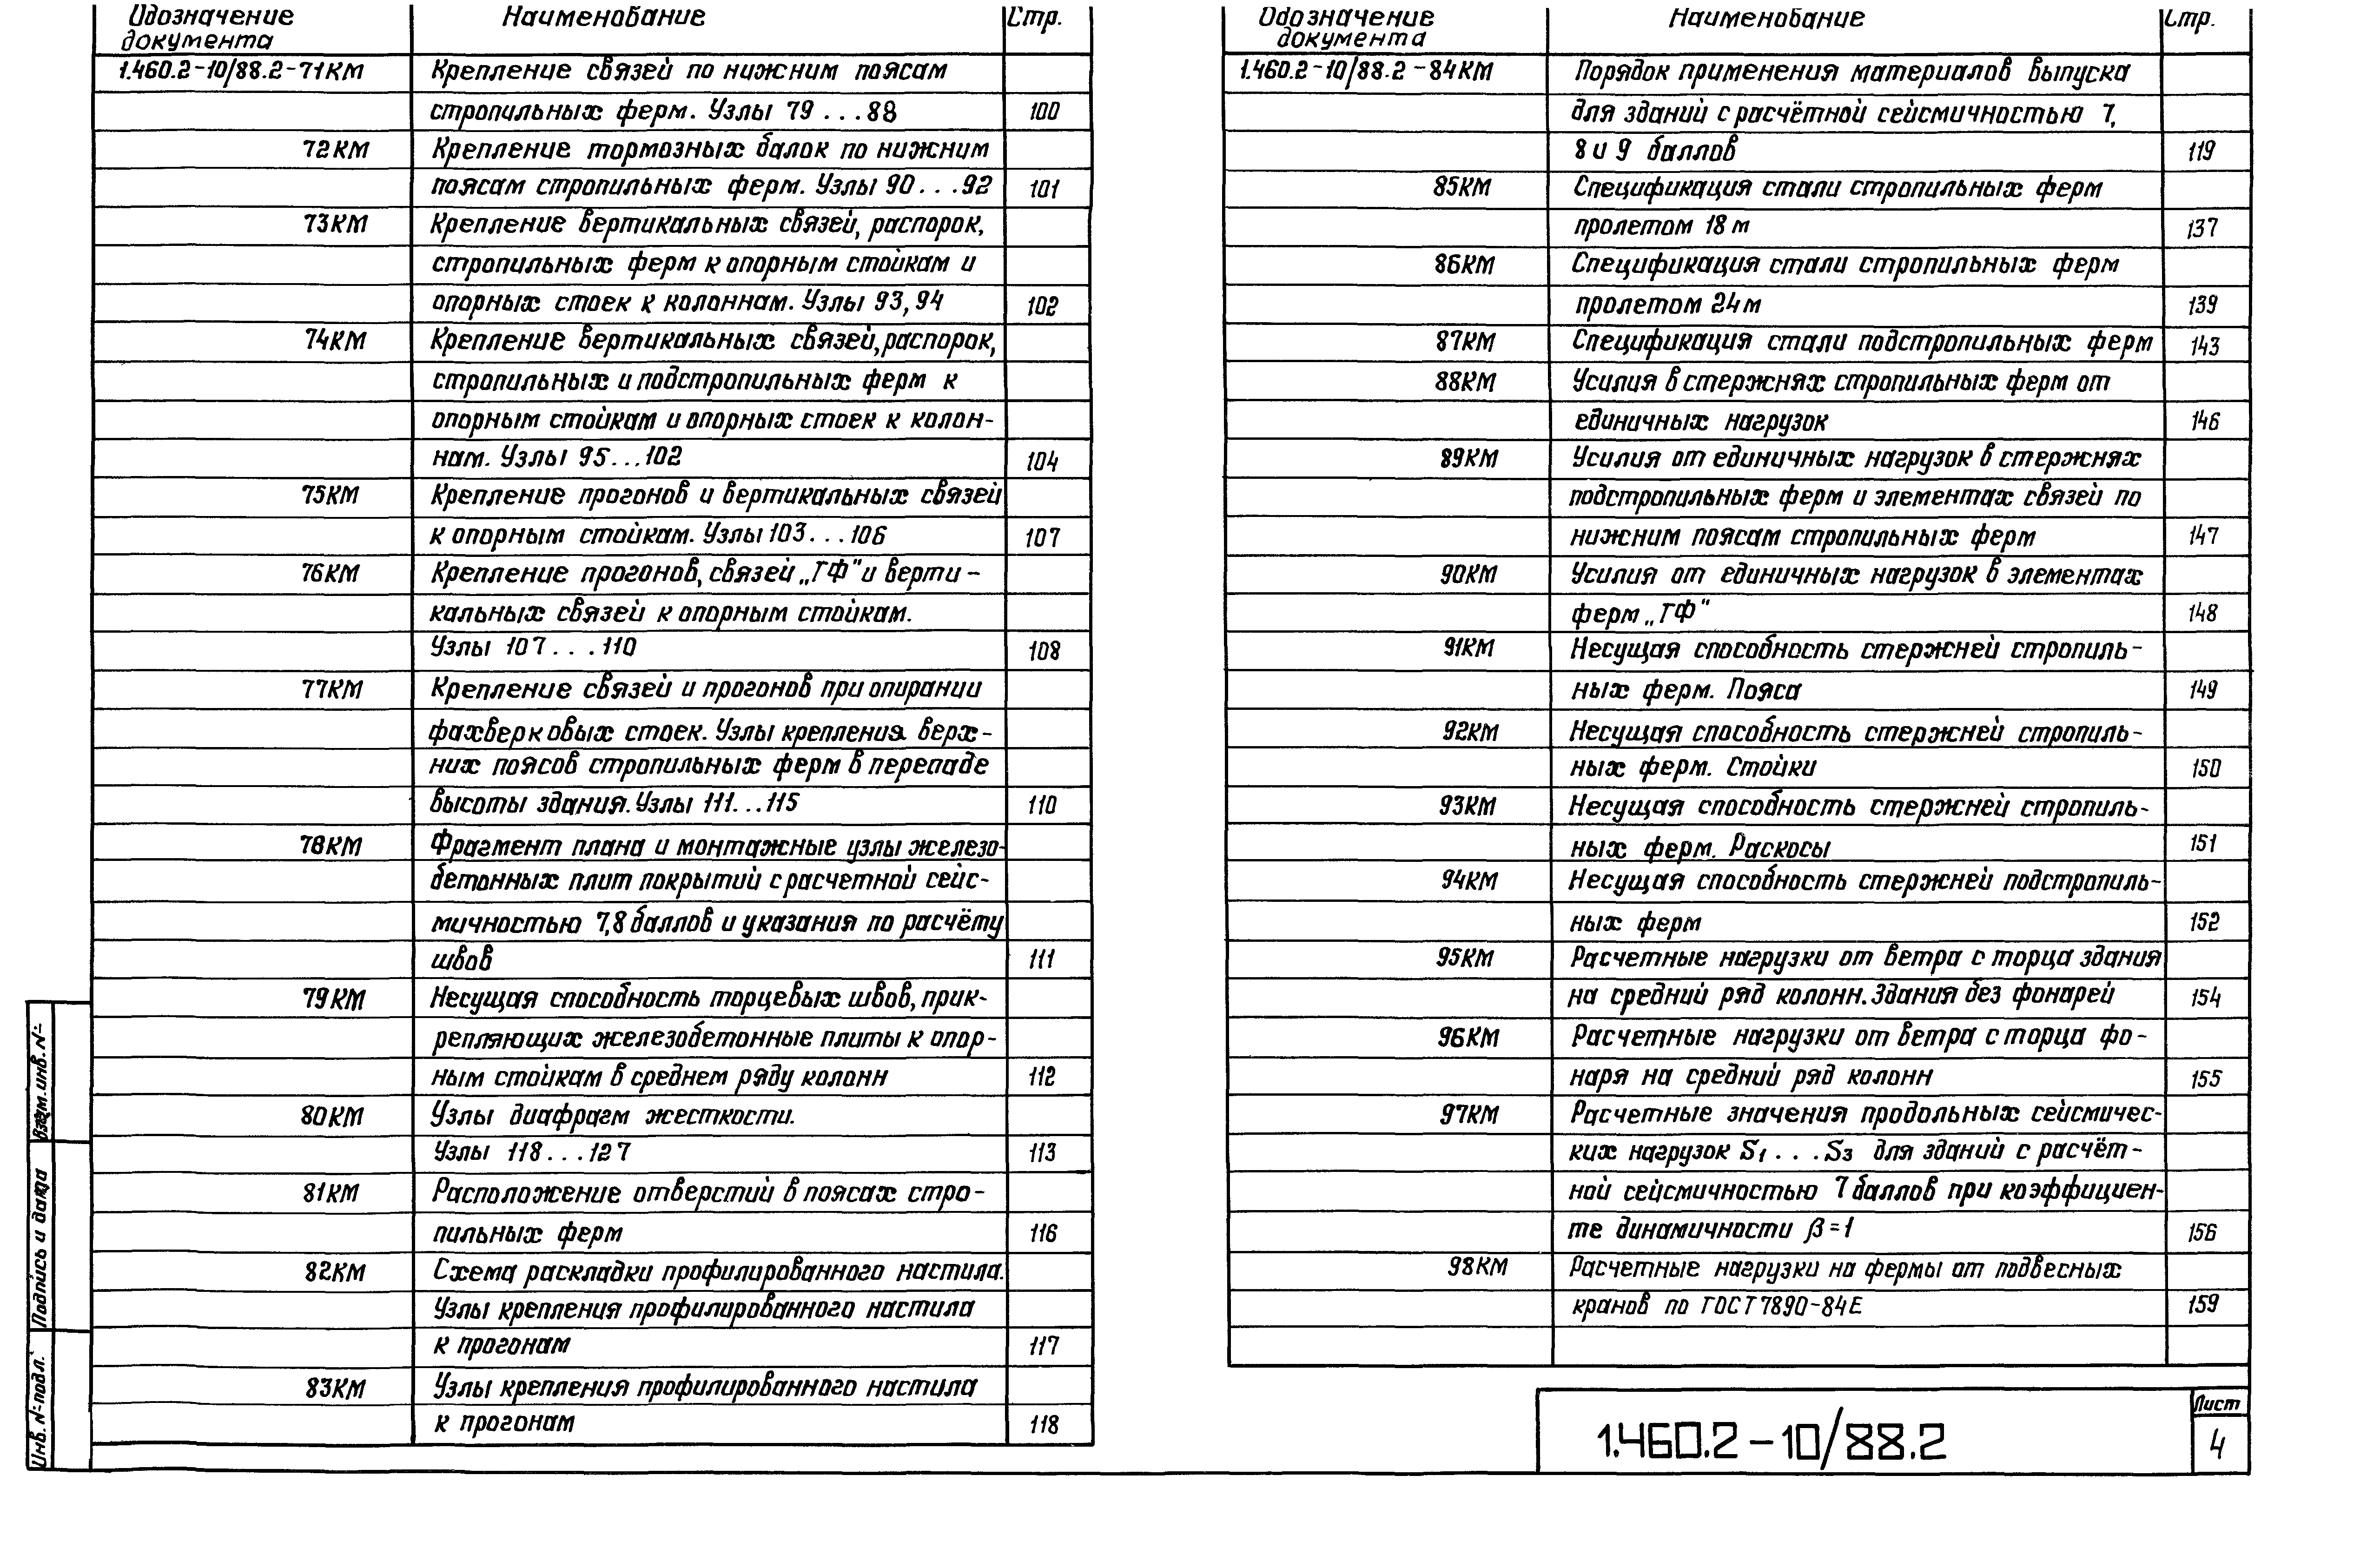 Обозначение документа Наименование Стр.
1.460.2-10/88.2-71КМ Крепление связей по нижним поясам
стропильных ферм. Узлы 79...88 100
72КМ Крепление тормозных балок по нижним
поясам стропильных ферм. Узлы 90...92 101
73КМ Крепление вертикальных связей, распорок,
стропильных ферм к опорным стойкам и
опорных стоек к колоннам. Узлы 93, 94 102
74КМ Крепление вертикальных связей, распорок,
стропильных и подстропильных ферм к
опорным стойкам и опорных стоек к колон-
нам. Узлы 95...102 104
75КМ Крепление прогонов и вертикальных связей
к опорным стойкам. Узлы 103...106 107
76КМ Крепление прогонов, связей „ГФ" и верти-
кальных связей к опорным стойкам.
Узлы 107...110 108
77КМ Крепление связей и прогонов при опирании
фахверковых стоек. Узлы крепления верх-
них поясов стропильных ферм в перепаде
высоты здания. Узлы 111...115 110
78КМ Фрагмент плана и монтажные узлы железо-
бетонных плит покрытий с расчетной сейс-
мичностью 7,8 баллов и указания по расчёту
швов 111
79КМ Несущая способность торцевых швов, прик-
репляющих железобетонные плиты к опор-
ным стойкам в среднем ряду колонн 112
80КМ Узлы диафрагм жесткости.
Узлы 118...127 113
81КМ Расположение отверстий в поясах стро-
пильных ферм 116
82КМ Схема раскладки профилированного настила.
Узлы крепления профилированного настила
к прогонам 117
83КМ Узлы крепления профилированного настила
к прогонам 118
Взам. инв. №
Подпись и дата
Инв. № подл.
Обозначение документа Наименование Стр.
1.460.2-10/88.2-84КМ Порядок применения материалов выпуска
для зданий с расчётной сейсмичностью 7,
8 и 9 баллов 119
85КМ Спецификация стали стропильных ферм
пролетом 18 м 137
86КМ Спецификация стали стропильных ферм
пролетом 24 м 139
87КМ Спецификация стали подстропильных ферм 143
88КМ Усилия в стержнях стропильных ферм от
единичных нагрузок 146
89КМ Усилия от единичных нагрузок в стержнях
подстропильных ферм и элементах связей по
нижним поясам стропильных ферм 147
90КМ Усилия от единичных нагрузок в элементах
ферм „ГФ" 148
91КМ Несущая способность стержней стропиль-
ных ферм. Пояса 149
92КМ Несущая способность стержней стропиль-
ных ферм. Стойки 150
93КМ Несущая способность стержней стропиль-
ных ферм. Раскосы 151
94КМ Несущая способность стержней подстропиль-
ных ферм 152
95КМ Расчетные нагрузки от ветра с торца здания
на средний ряд колонн. Здания без фонарей 154
96КМ Расчетные нагрузки от ветра с торца фо-
наря на средний ряд колонн 155
97КМ Расчетные значения продольных сейсмичес-
ких нагрузок S₁...S₃ для зданий с расчёт-
ной сейсмичностью 7 баллов при коэффициен-
те динамичности β=1 156
98КМ Расчетные нагрузки на фермы от подвесных
кранов по ГОСТ 7890-84Е 159
1.460.2-10/88.2
Лист
4